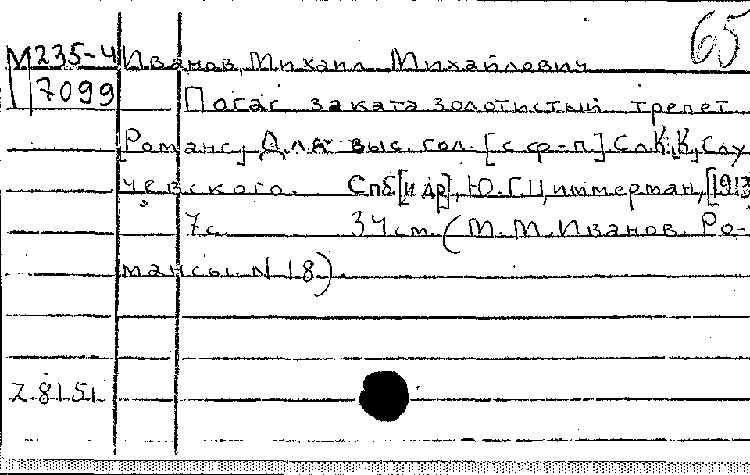 65
М235-4 Иванов, Михаил Михайлович
7099 Погас заката золотистый трепет
[Романс] Для выс. гол. [с ф-п]. Сл. К.К. Слу
чевского. Спб [и др], Ю.Г. Циммерман, [1913
7 с. 34 см. (М.М. Иванов. Ро-
мансы. N 18).
Z.8151